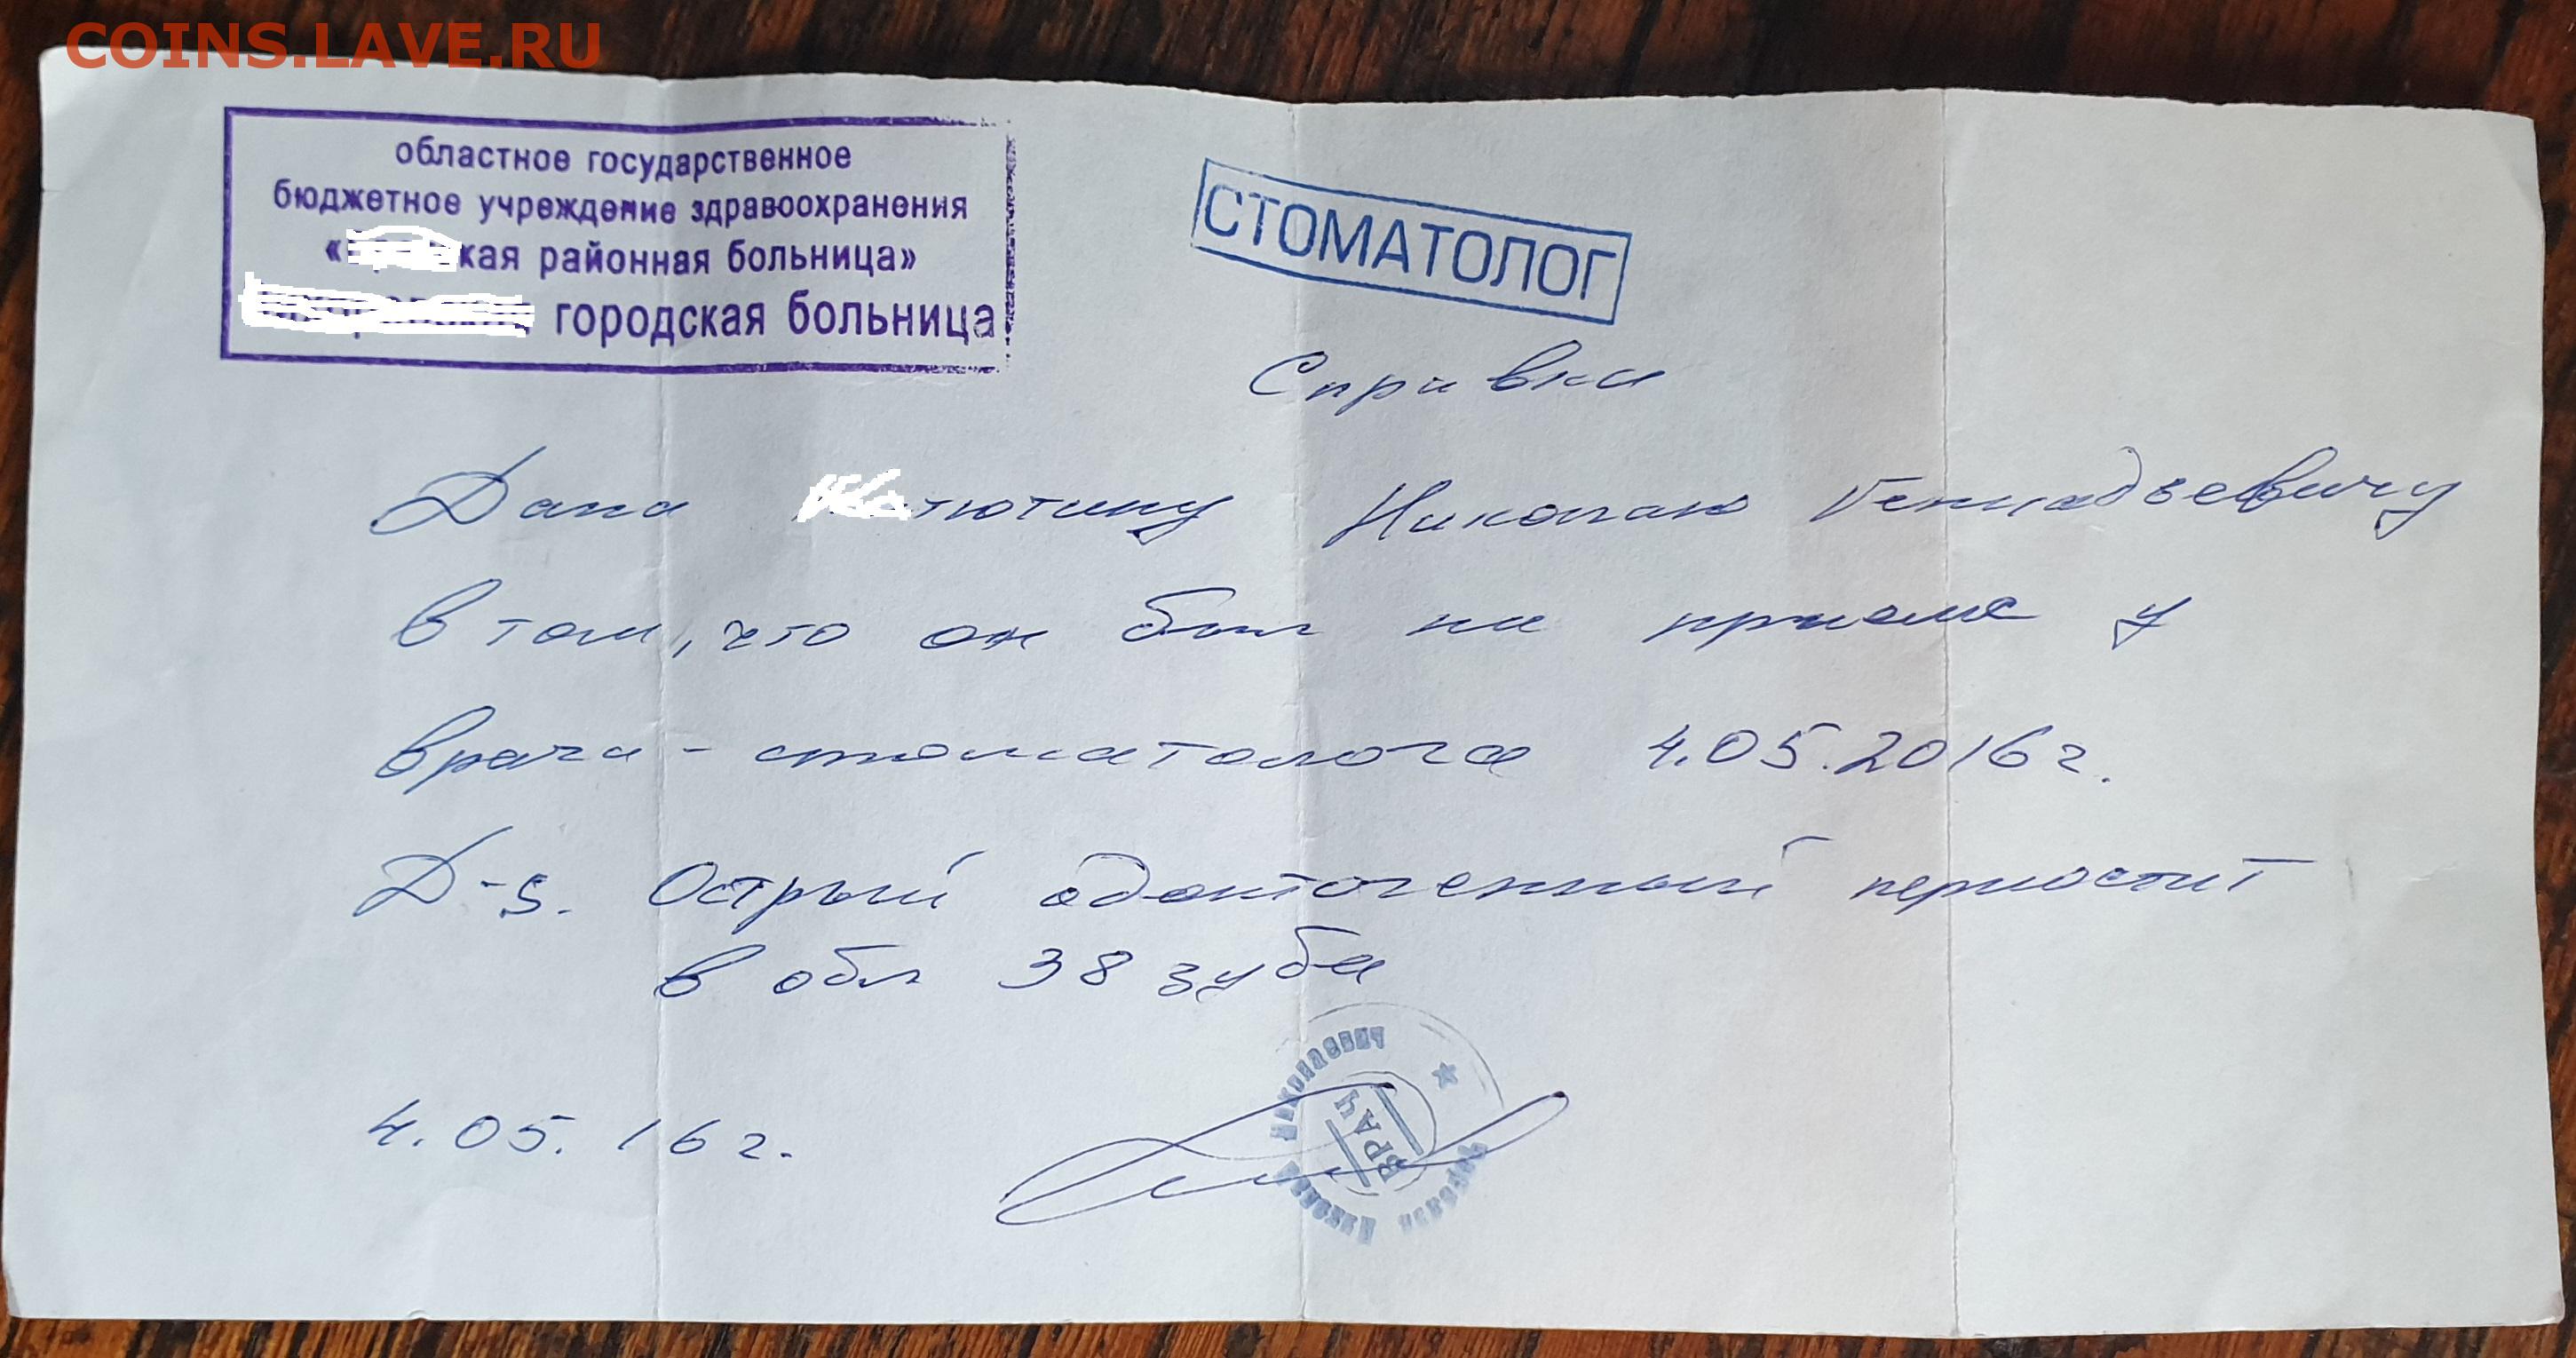 COINS.LAVE.RU
областное государственное
бюджетное учреждение здравоохранения
кая районная больница»
городская больница
СТОМАТОЛОГ
Справка
Дана тютину Николаю Геннадьевичу
в том, что он был на приеме у
врача - стоматолога 4.05.2016 г.
D-s. Острый одонтогенный периостит
в обл 38 зуба
4.05.16 г.
Николаевич
ВРАЧ